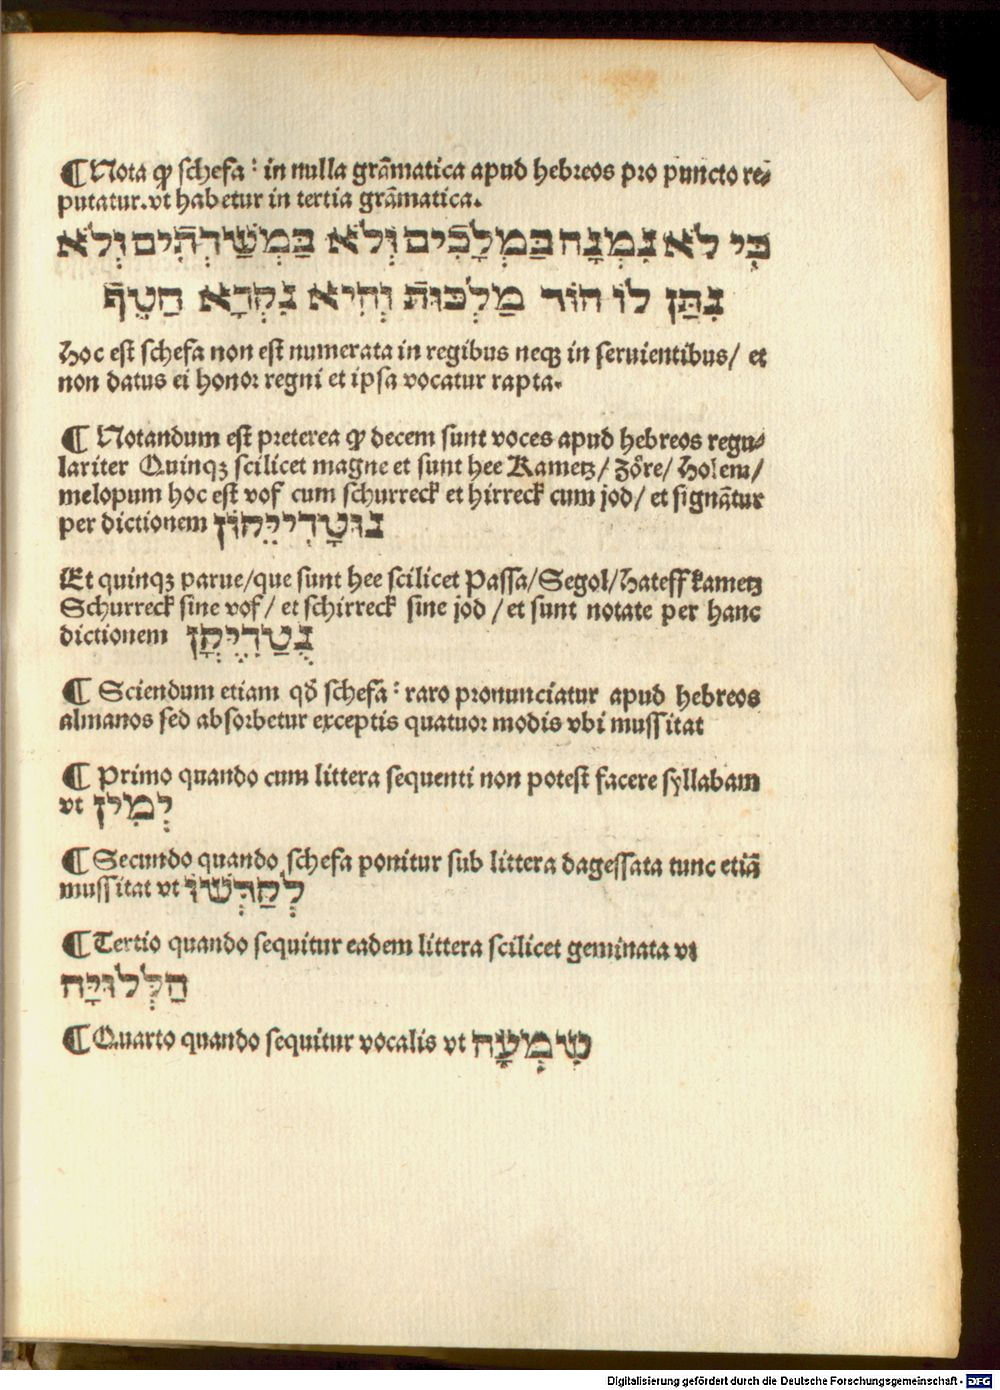 ¶Nota ꝙ schefa ְ in nulla grāmatica apud hebreos pro puncto re⸗
putatur.vt habetur in tertia grāmatica.
כִּי לֹא נִמְנָח בַּמְלָכִים וְלֹא בַּמְשַׁרְתִים וְלֹא
נִתַּן לוֹ הוֹד מַלְכוּת וְהִיא נִקְרָא חֲטֶף
Hoc est schefa non est numerata in regibus neqꝫ in seruientibus/ et
non datus ei honor regni et ipsa vocatur rapta.
¶ Notandum est preterea ꝙ decem sunt voces apud hebreos regu⸗
lariter Quinqꝫ scilicet magne et sunt hee Kametz/ Zöre/ Holem/
melopum hoc est vof cum schurreck et hirreck cum jod/ et signātur
per dictionem
Et quinqꝫ parue/que sunt hee scilicet Passa/Segol/Hateff kametz
Schurreck sine vof/ et schirreck sine jod /et sunt notate per hanc
dictionem
¶ Sciendum etiam qđ schefa ְ raro pronunciatur apud hebreos
almanos sed absorbetur exceptis quatuor modis vbi mussitat
¶ Primo quando cum littera sequenti non potest facere syllabam
vt לְמִין
¶ Secundo quando schefa ponitur sub littera dagessata tunc etiā
mussitat vt
¶ Tertio quando sequitur eadem littera scilicet geminata vt
הַלְלוּיָּה
¶ Quarto quando sequitur vocalis vt שִׁמְעָה
Digitalisierung gefördert durch die Deutsche Forschungsgemeinschaft - DFG